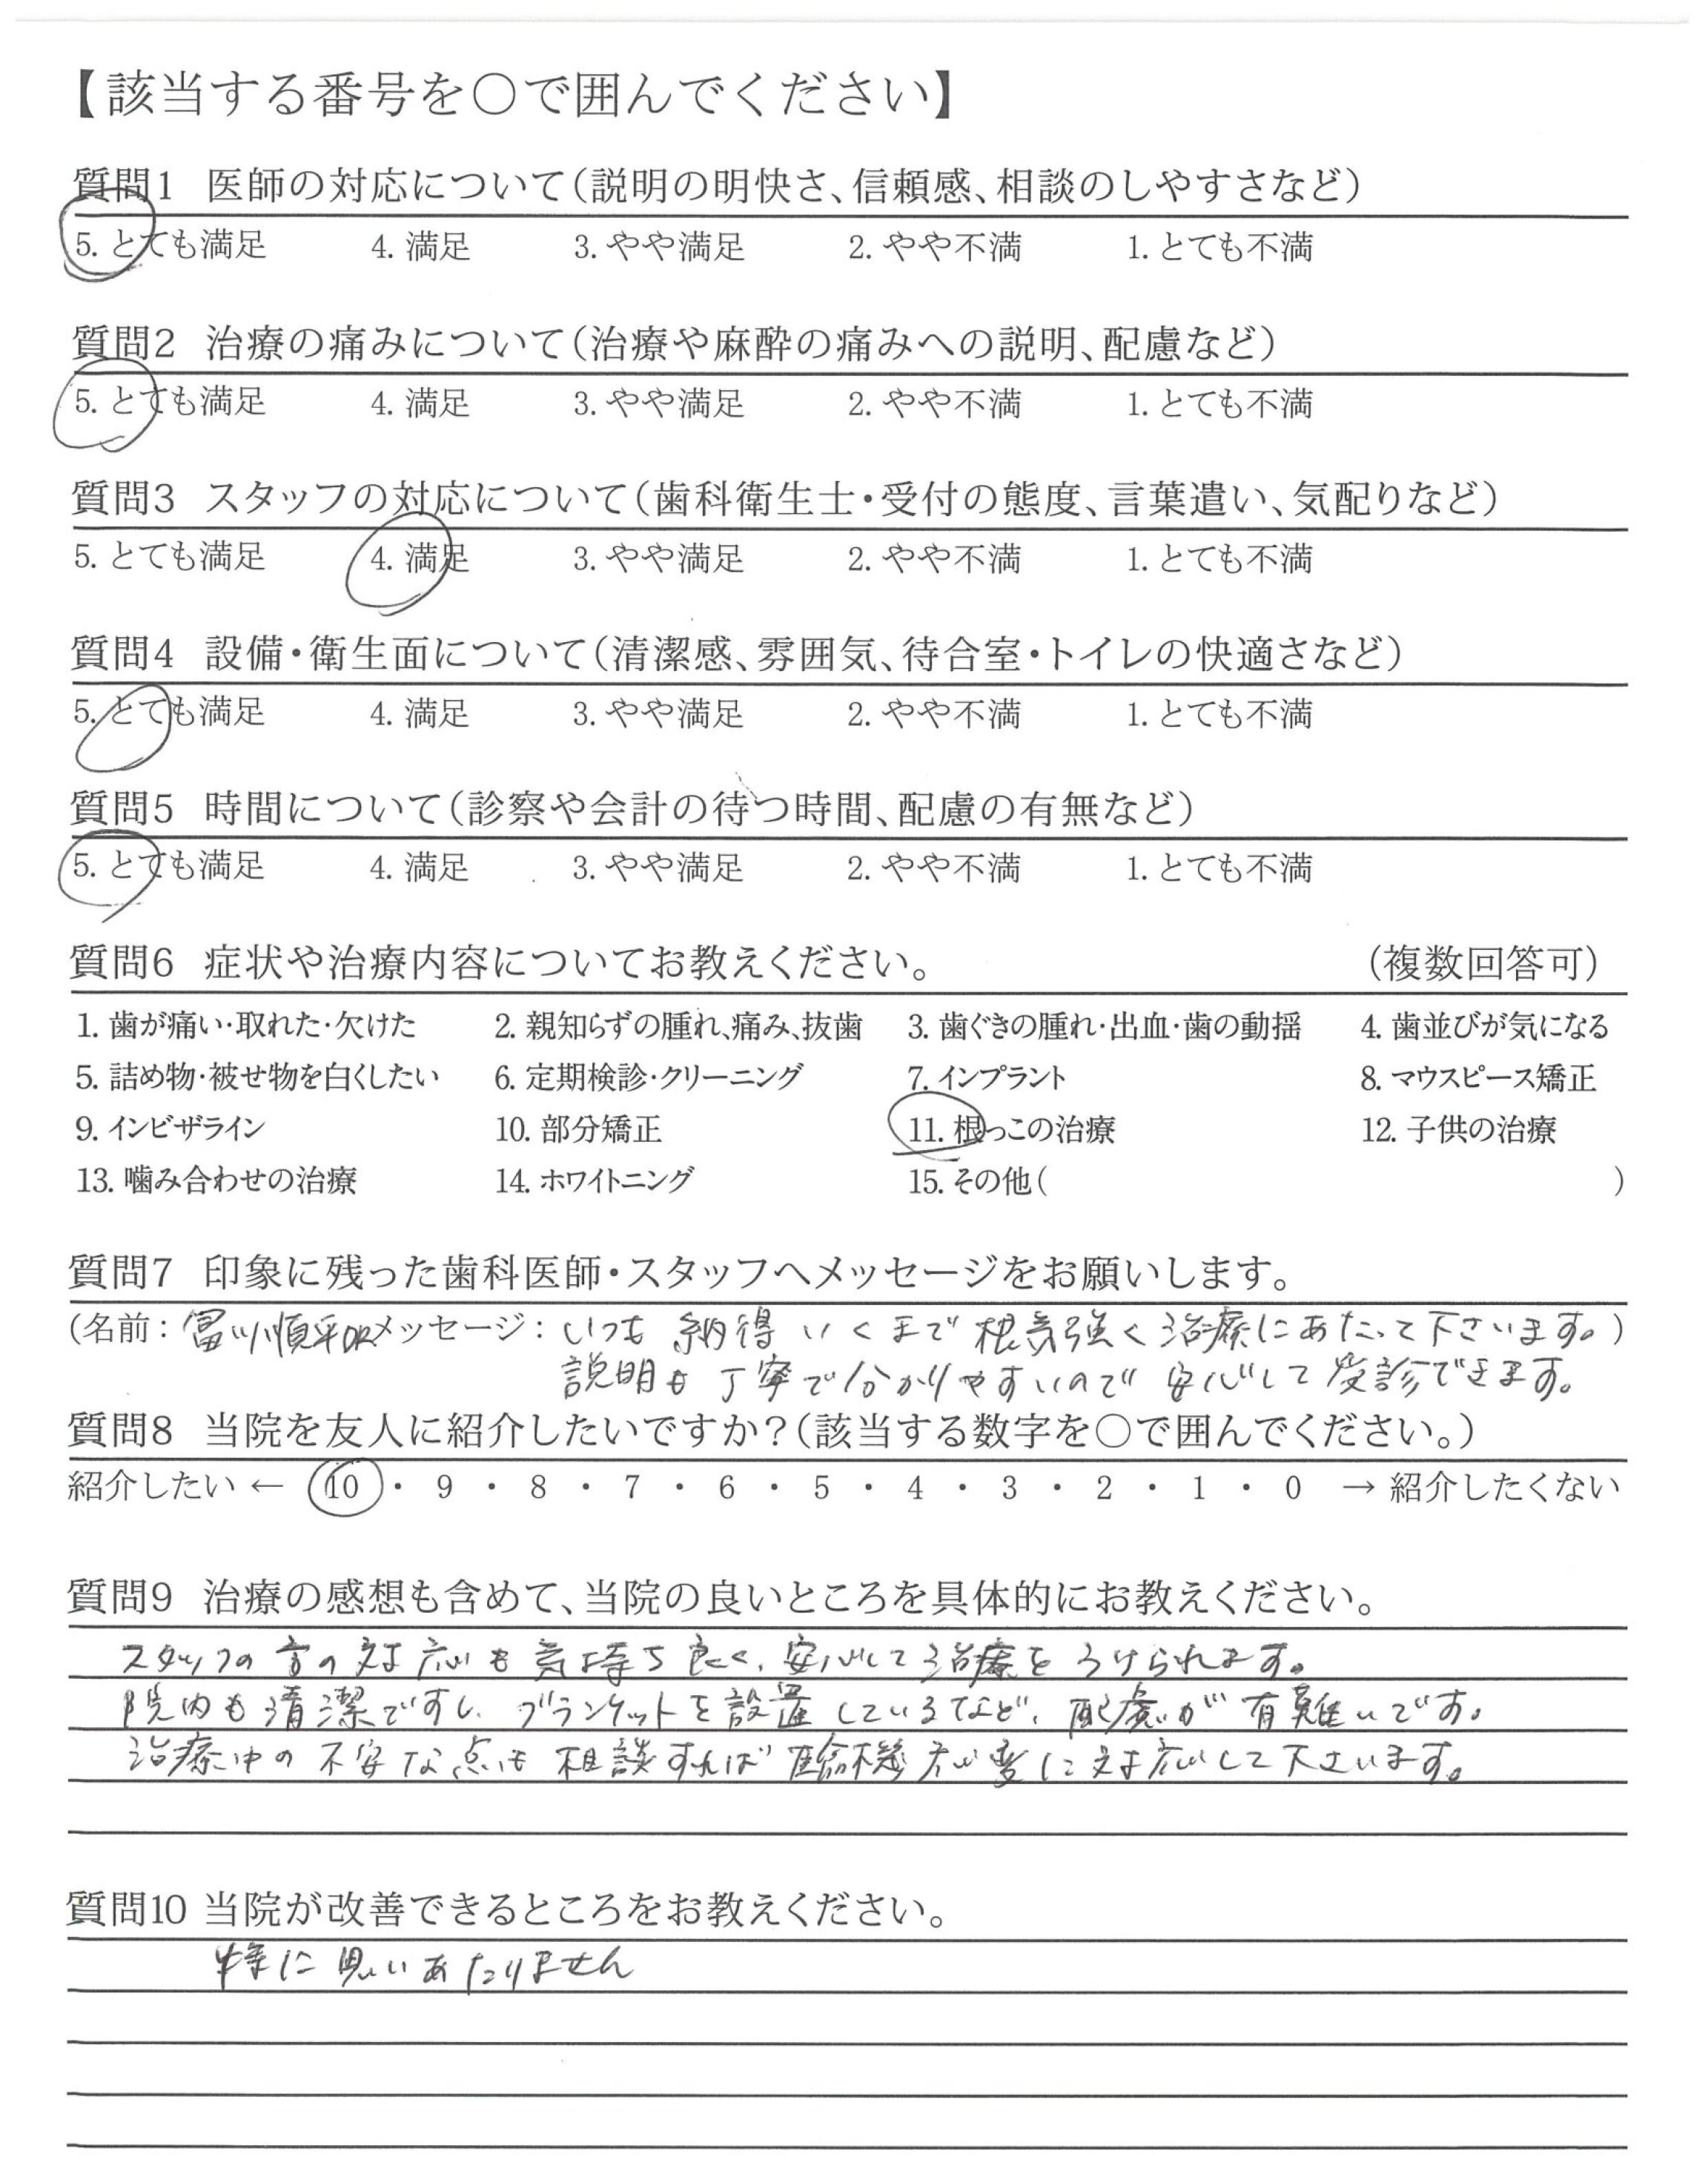 【該当する番号を○で囲んでください】
質問1 医師の対応について(説明の明快さ、信頼感、相談のしやすさなど)
5. とても満足 4. 満足 3. やや満足 2. やや不満 1. とても不満
質問2 治療の痛みについて(治療や麻酔の痛みへの説明、配慮など)
5. とても満足 4. 満足 3. やや満足 2. やや不満 1. とても不満
質問3 スタッフの対応について(歯科衛生士・受付の態度、言葉遣い、気配りなど)
5. とても満足 4. 満足 3. やや満足 2. やや不満 1. とても不満
質問4 設備・衛生面について(清潔感、雰囲気、待合室・トイレの快適さなど)
5. とても満足 4. 満足 3. やや満足 2. やや不満 1. とても不満
質問5 時間について(診察や会計の待つ時間、配慮の有無など)
5. とても満足 4. 満足 3. やや満足 2. やや不満 1. とても不満
質問6 症状や治療内容についてお教えください。 (複数回答可)
1. 歯が痛い・取れた・欠けた 2. 親知らずの腫れ、痛み、抜歯 3. 歯ぐきの腫れ・出血・歯の動揺 4. 歯並びが気になる
5. 詰め物・被せ物を白くしたい 6. 定期検診・クリーニング 7. インプラント 8. マウスピース矯正
9. インビザライン 10. 部分矯正 11. 根っこの治療 12. 子供の治療
13. 噛み合わせの治療 14. ホワイトニング 15. その他( )
質問7 印象に残った歯科医師・スタッフへメッセージをお願いします。
(名前: 冨川順平DR メッセージ: いつも 納得 いくまで 根気強く治療にあたって下さいます。)
説明も丁寧で分かりやすいので 安心して受診できます。
質問8 当院を友人に紹介したいですか?(該当する数字を○で囲んでください。)
紹介したい ← 10 ・ 9 ・ 8 ・ 7 ・ 6 ・ 5 ・ 4 ・ 3 ・ 2 ・ 1 ・ 0 → 紹介したくない
質問9 治療の感想も含めて、当院の良いところを具体的にお教えください。
スタッフの方の対応も気持ち良く、安心して治療をうけられます。
院内も清潔ですし、ブランケットを設置しているなど、配慮が有難いです。
治療中の不安な点も相談すれば臨機応変に対応して下さいます。
質問10 当院が改善できるところをお教えください。
特に思いあたりません